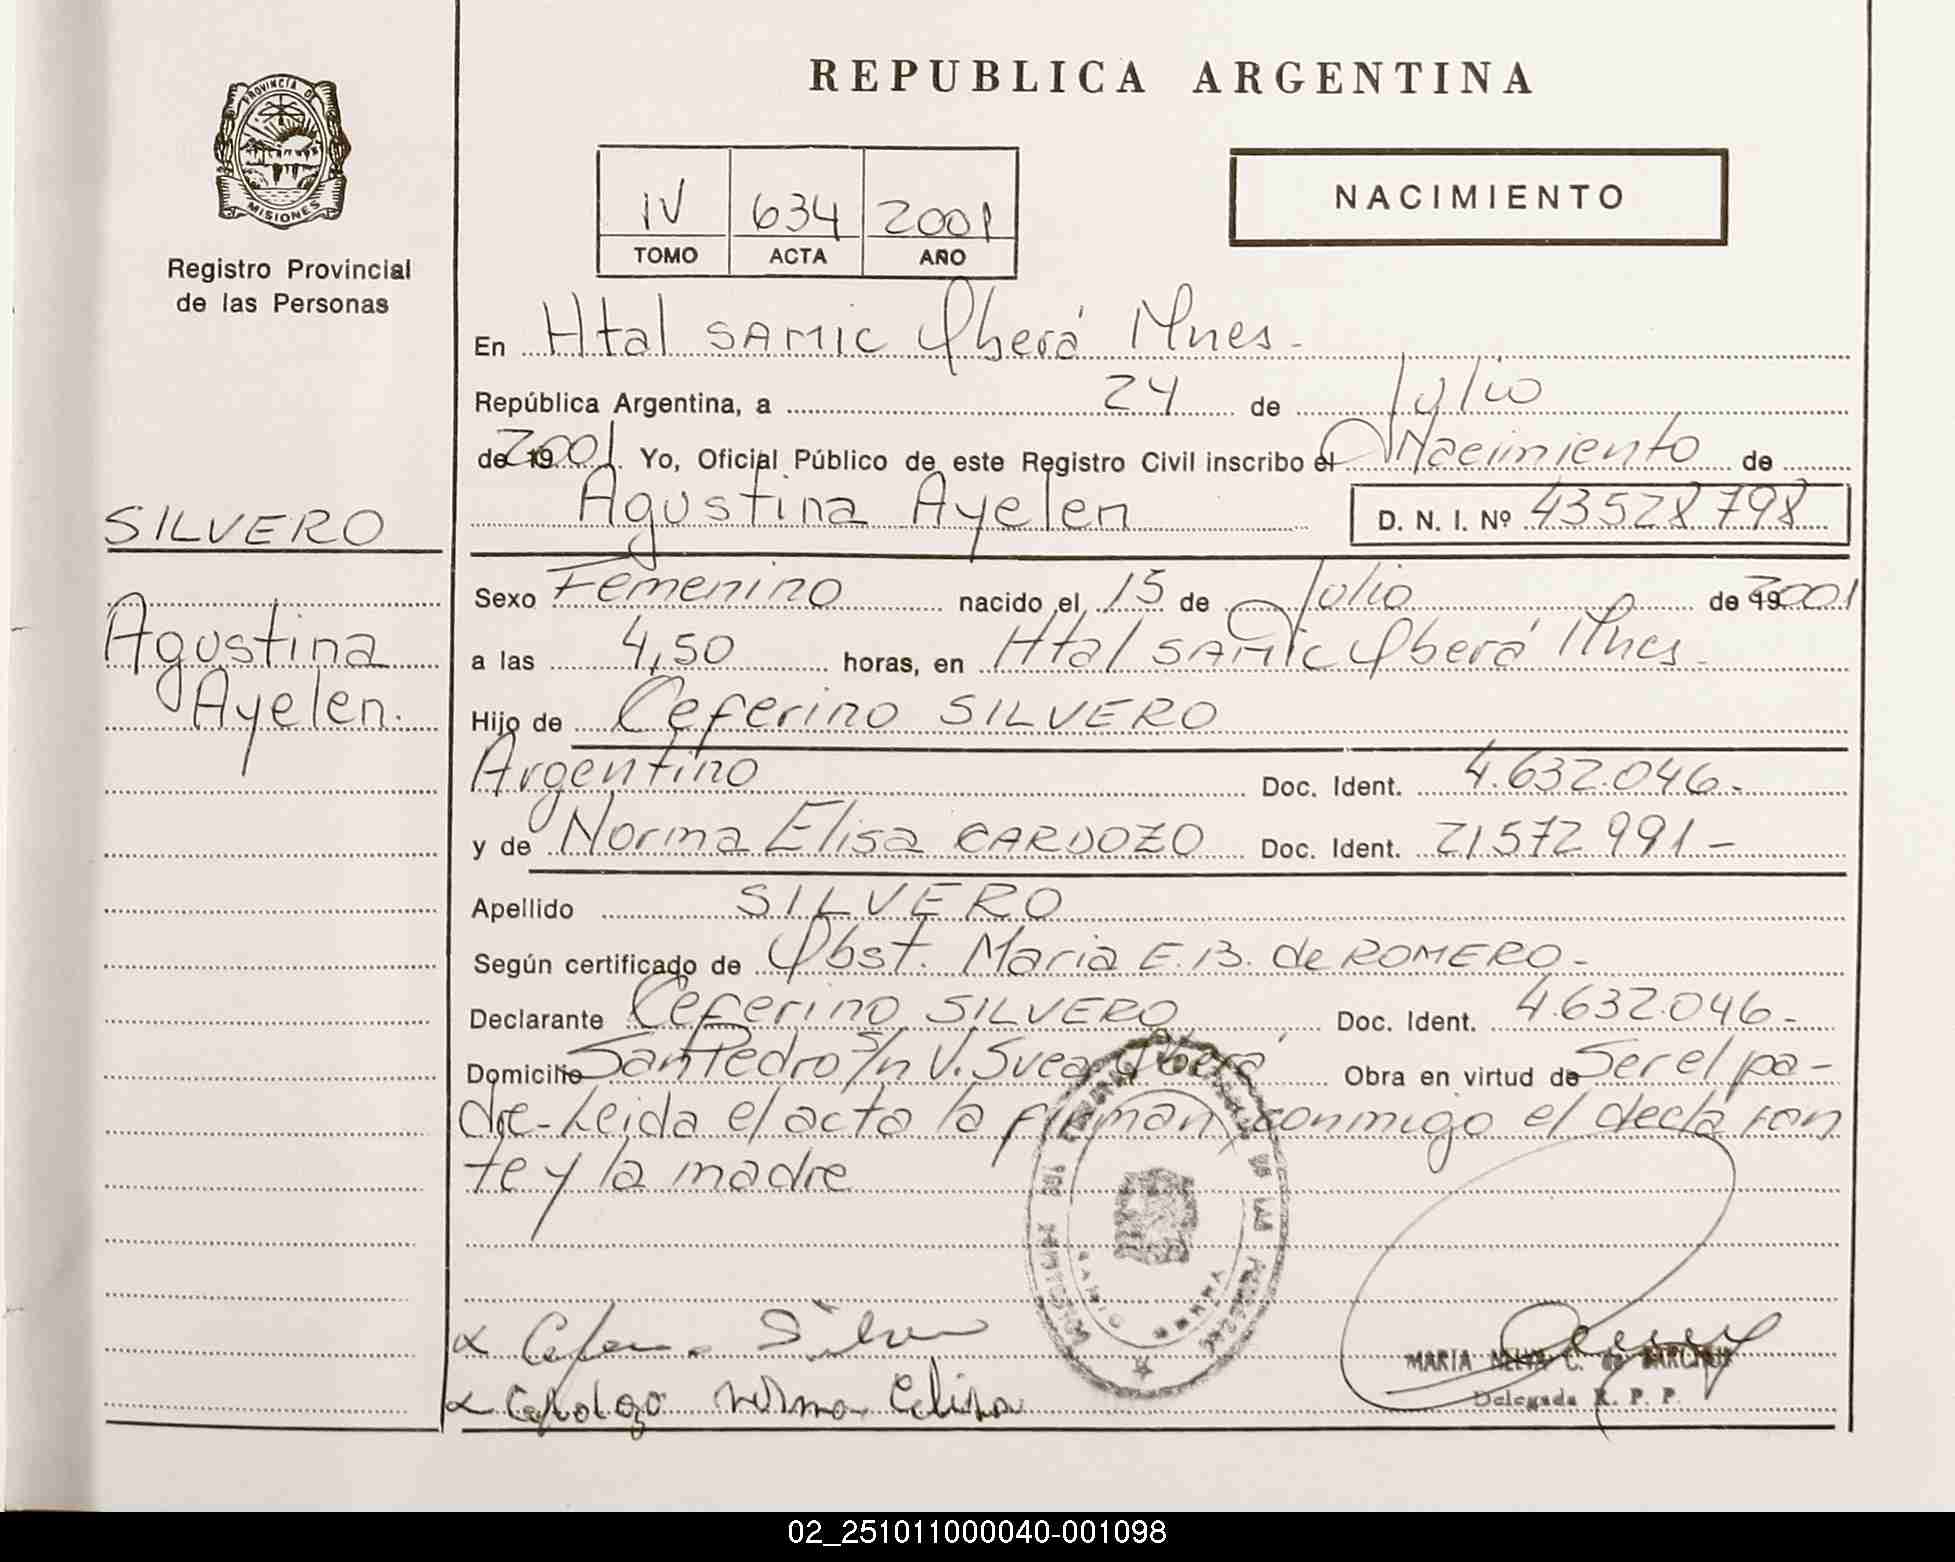 REPUBLICA ARGENTINA
PROVINCIA DE
MISIONES
Registro Provincial
de las Personas
IV 634 2001
TOMO ACTA AÑO
NACIMIENTO
En Htal SAMIC Oberá Mnes.
República Argentina, a 24 de Julio
de 19 2001 Yo, Oficial Público de este Registro Civil inscribo el Nacimiento de
Agustina Ayelen D. N. I. Nº 43528798
SILVERO
Agustina
Ayelen.
Sexo Femenino nacido el 15 de Julio de 19 2001
a las 4,50 horas, en Htal SAMIC Oberá Mnes.
Hijo de Ceferino SILVERO
Argentino Doc. Ident. 4.632.046.-
y de Norma Elisa CARDOZO Doc. Ident. 21572991-
Apellido SILVERO
Según certificado de Obst. Maria E. B. de ROMERO-
Declarante Ceferino SILVERO Doc. Ident. 4.632.046-
Domicilio San Pedro s/n V. Svea Oberá Obra en virtud de Ser el pa-
dre- Leida el acta la firman conmigo el declaran
te y la madre
Silvero
Cardozo Norma Celina
MARIA C. de
Delegada R. P. P.
02_251011000040-001098